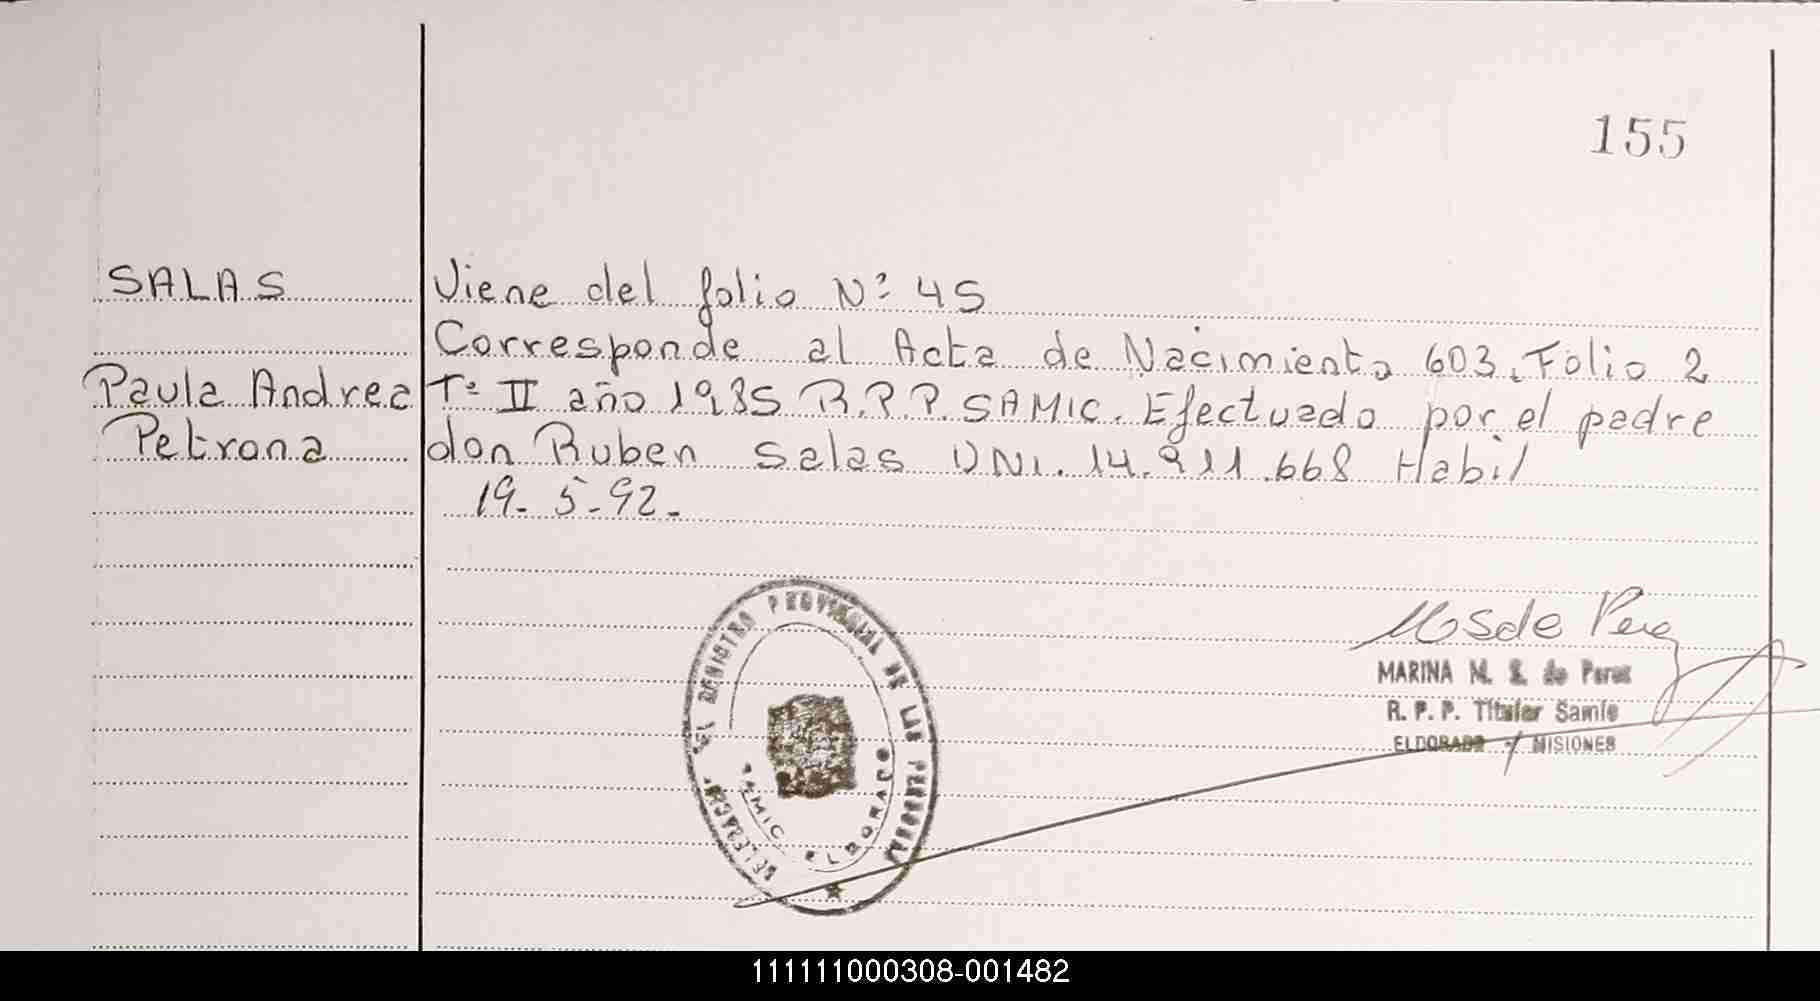 155
SALAS
Paula Andrea
Petrona
Viene del folio Nº 45
Corresponde al Acta de Nacimiento 603, Folio 2
Tº II año 1985 R.P.P. SAMIC. Efectuado por el padre
don Ruben Salas DNI. 14.911.668 Habil
19-5-92-
DELEGACION DEL REGISTRO PROVINCIAL DE LAS PERSONAS
SAMIC ELDORADO
MSde Perez
MARINA M. S. de Perez
R. P. P. Titular Samic
ELDORADO - MISIONES
111111000308-001482